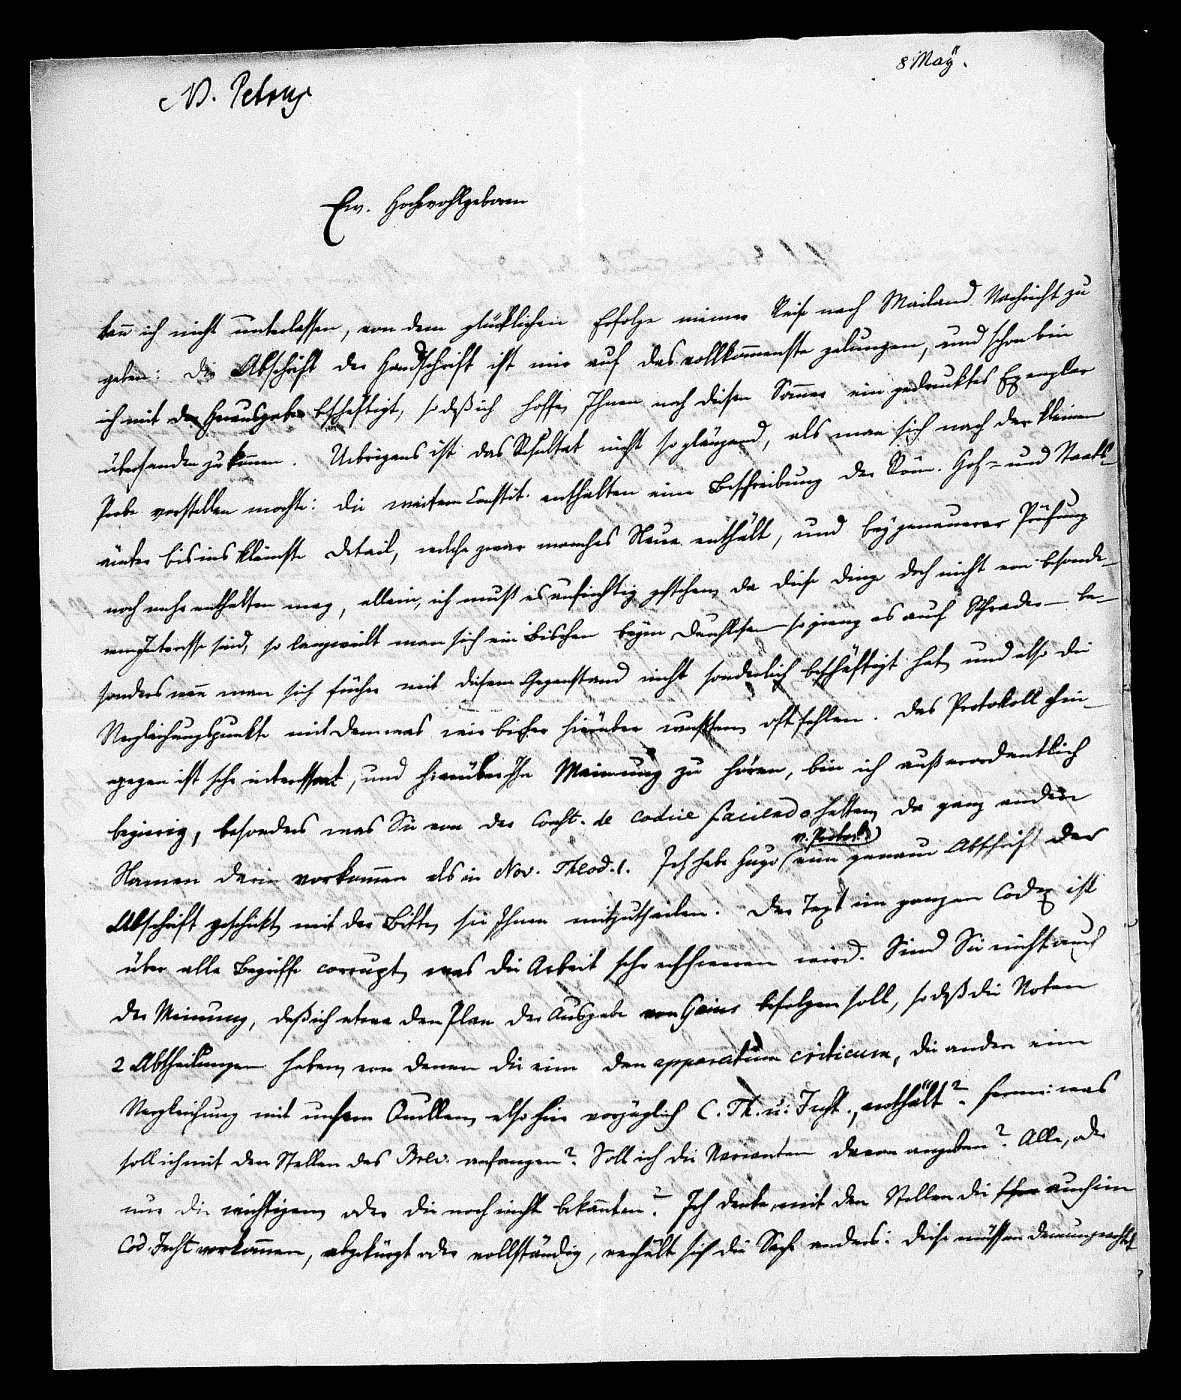 8 May.
NB. Petrus
Ew. Hochwohlgeboren
kann ich nicht unterlassen, von dem glücklichen Erfolge meiner Reise nach Mailand Nachricht zu
geben: Die Abschrift der Handschrift ist mir auf das vollkommenste gelungen, und schon bin
ich mit der Herausgabe beschäftigt, so daß ich hoffe, Ihnen noch diesen Sommer ein gedrucktes Exemplar
übersenden zu können. Uebrigens ist das Resultat nicht so glänzend, als man sich nach der kleinen
Probe vorstellen mochte: die meisten Constit. enthalten eine Beschreibung der Röm. Hof- und Staats-
ämter bis ins kleinste Detail, welche zwar manches Neue enthält, und bey genauerer Prüfung
noch mehr enthalten mag, allein, ich muß es aufrichtig gestehen, da diese Dinge doch nicht von besonde-
rem Interesse sind, so langweilt man sich ein Bischen beym Durchlesen – so gieng es auch Schrader – be-
sonders wenn man sich früher mit diesem Gegenstand nicht sonderlich beschäftigt hat, und also die
Vergleichungspunkte mit dem was wir bisher hierüber wußten, oft fehlen. Das Protokoll hin-
gegen ist sehr interessant, und hierüber Ihre Meinung zu hören, bin ich außerordentlich
begierig, besonders was Sie von der Const. de codice faciendo halten, da ganz andere
Namen darin vorkommen als in Nov. Theod. 1. Ich habe Hugo (v. Protok.) eine genaue Abschrift der
Abschrift geschickt, mit der Bitte, sie Ihnen mitzutheilen. Der Text im ganzen Codex ist
über alle Begriffe corrupt, was die Arbeit sehr erschweren wird. Sind Sie nicht auch
der Meinung, daß ich etwa den Plan der Ausgabe von Gaius befolgen soll, so daß die Noten
2 Abtheilungen haben, von denen die eine den apparatum criticum, die andere eine
Vergleichung mit unsern Quellen, also hier vorzüglich C. Th. u. Just., enthält? Ferner: was
soll ich mit den Stellen des Brev. anfangen? Soll ich die Varianten davon angeben? Alle, oder
nur die wichtigen, oder die noch nicht bekannten? Ich denke, mit den Stellen die schon auch im
Cod. Just. vorkommen, abgekürzt oder vollständig, verhält sich die Sache anders: diese müssen demungeachtet